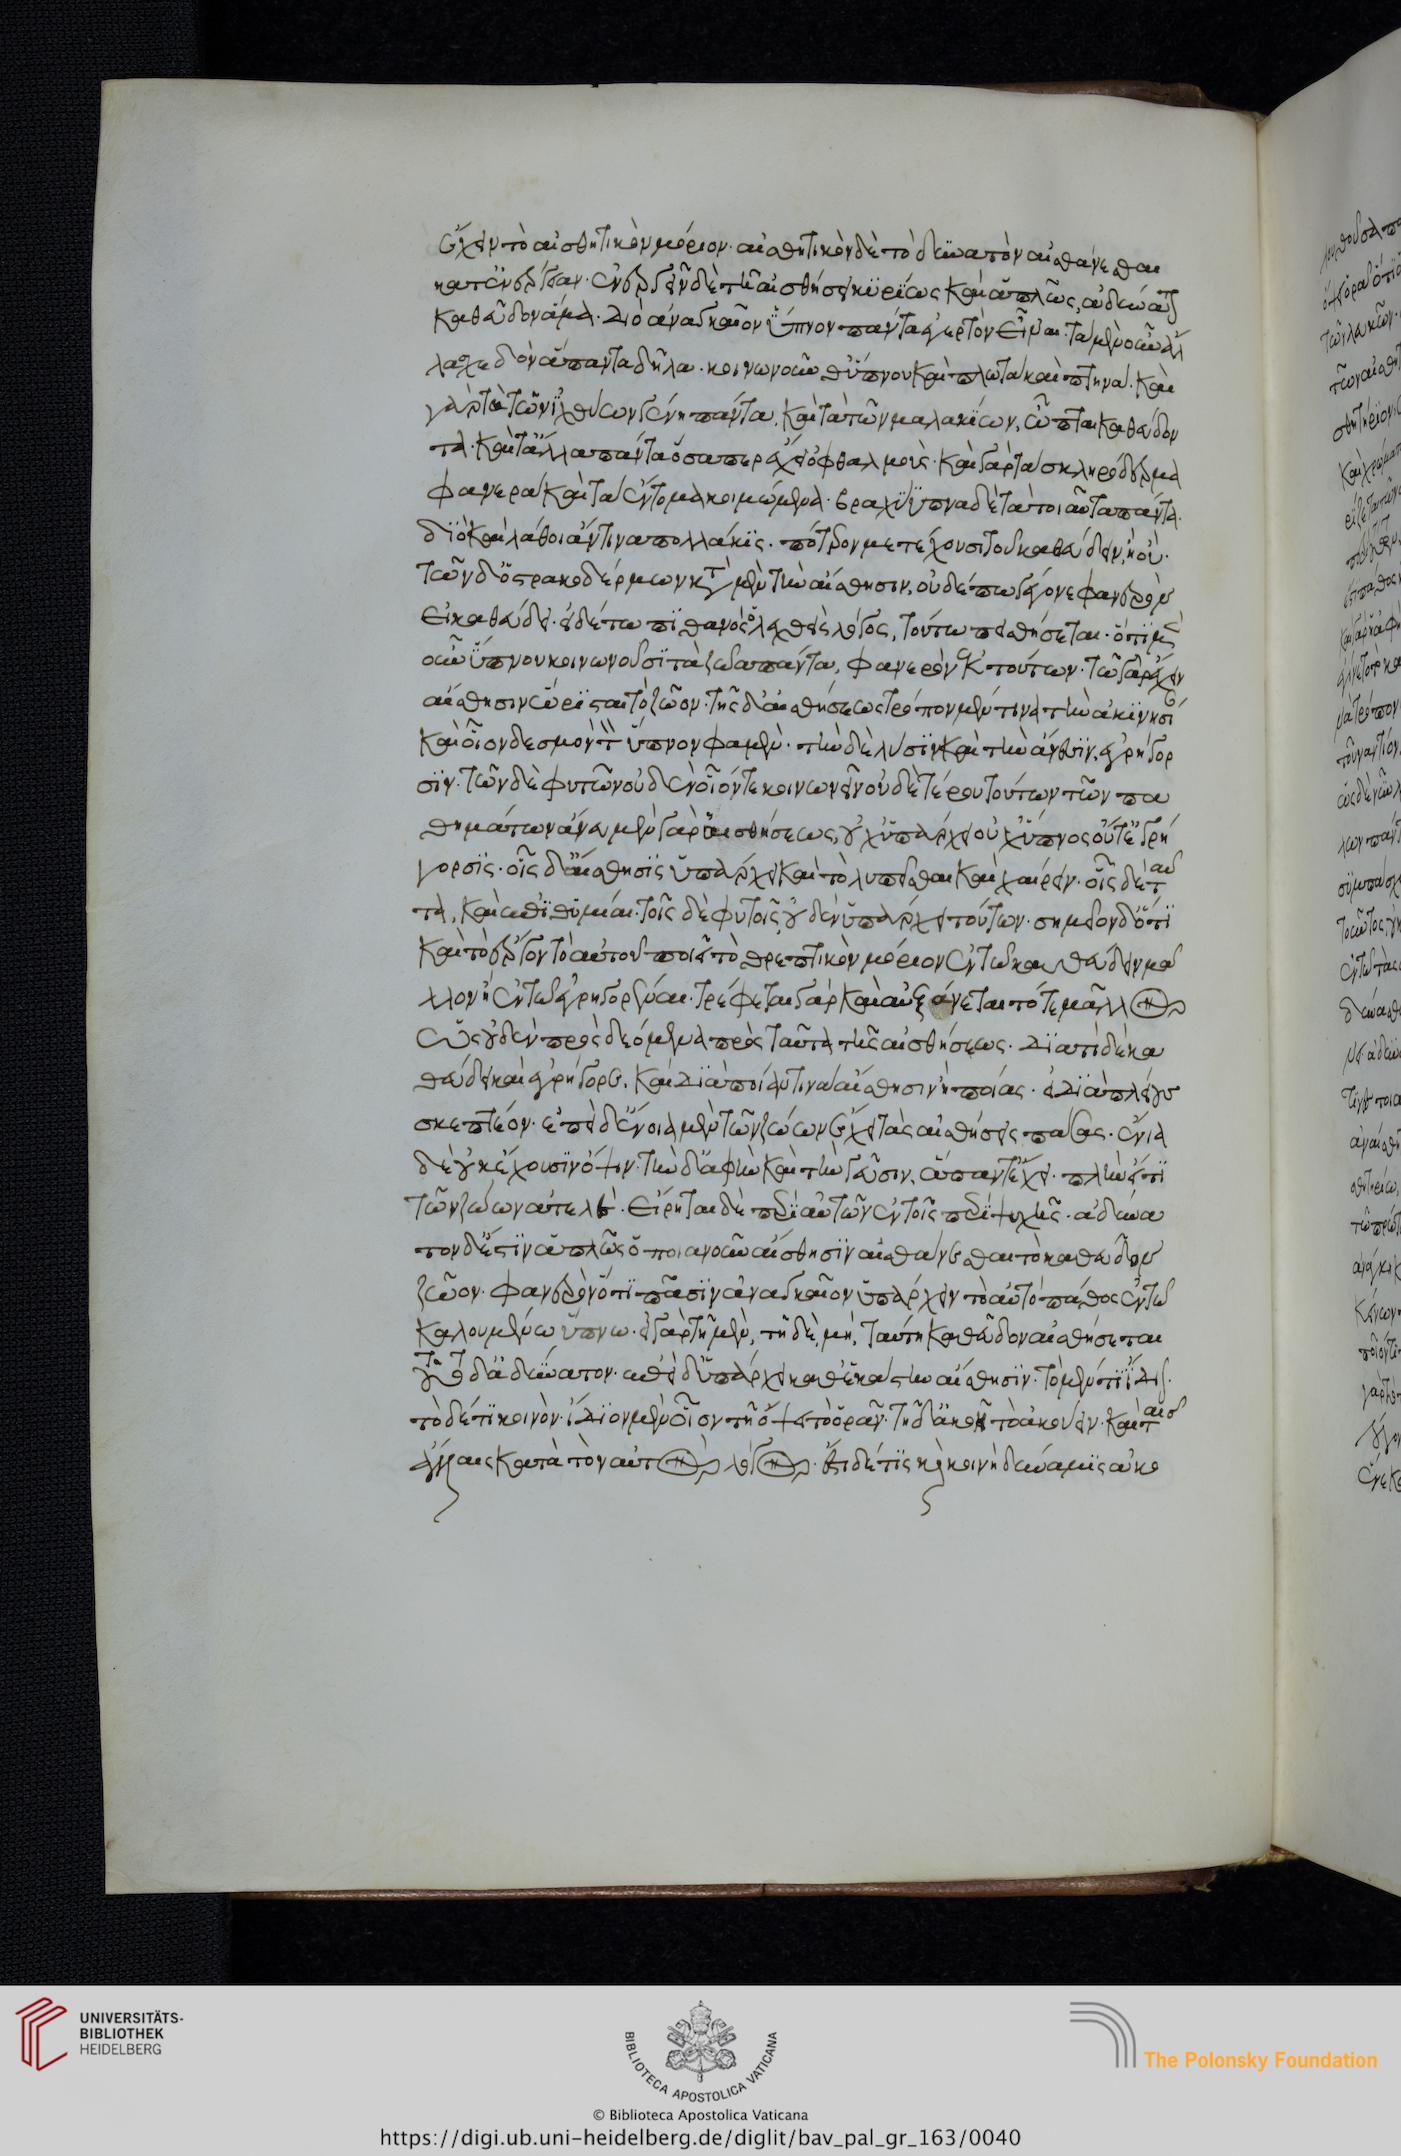 ἔχειν τὸ αἰσθητικὸν μόριον· αἰσθητικὸν δὲ τὸ δυνατὸν αἰσθάνεσθαι
κατ' ἐνέργειαν· ἐνεργεῖν δὲ τῇ αἰσθήσει κυρίως καὶ ἁπλῶς, ἀδύνατον
καθεῦδον ἅμα· διὸ ἀναγκαῖον ὕπνον πάντα ἐγερτὸν εἶναι· τὰ μὲν οὖν ἄλ
λα σχεδὸν ἅπαντα δῆλα· κοινωνοῦνθ' ὕπνου καὶ πλωτὰ καὶ πτηνά· καὶ
γὰρ τὰ τῶν ἰχθύων γένη πάντα, καὶ τὰ τῶν μαλακίων, ὦπται καθεύδον
τα· καὶ τἆλλα πάντα ὅσαπερ ἔχει ὀφθαλμούς· καὶ γὰρ τὰ σκληρόδερμα
φανερὰ καὶ τὰ ἔντομα κοιμώμενα· βραχύυπνα δὲ τὰ τοιαῦτα πάντα·
διὸ καὶ λάθοι ἄν τινα πολλάκις· πότερον μετέχουσι τοῦ καθεύδειν, ἢ οὔ·
τῶν δ' ὀστρακοδέρμων κατὰ μὲν τὴν αἴσθησιν, οὐδέπω γέγονε φανερὸν
εἰ καθεύδει· εἰ δέ τω πιθανὸς ὁ λεχθεὶς λόγος, τούτω πεισθήσεται· ὅτι μὲν
οὖν ὕπνου κοινωνοῦσι τὰ ζῶα πάντα, φανερὸν ἐκ τούτων· τῶ γὰρ ἔχειν
αἴσθησιν ὥρισται τὸ ζῶον· τῆς δ' αἰσθήσεως τρόπον μέν τινα τὴν ἀκινησί
καὶ οἷον δεσμὸν τὸν ὕπνον φαμέν· τὴν δὲ λύσιν καὶ τὴν ἄνεσιν, ἐγρήγορ
σιν· τῶν δὲ φυτῶν οὐδὲν οἷόν τε κοινωνεῖν οὐδετέρου τούτων τῶν πα
θημάτων ἄνευ μὲν γὰρ αἰσθήσεως, οὐχ ὑπάρχει οὐχ ὕπνος οὔτ' ἐγρή
γορσις· οἷς δ' αἴσθησις ὑπάρχει καὶ τὸ λυπεῖσθαι καὶ χαίρειν· οἷς δὲ ταῦ
τα, καὶ ἐπιθυμία· τοῖς δὲ φυτοῖς οὐδὲν ὑπάρχει τούτων· σημεῖον δ' ὅτι
καὶ τὸ ἔργον τὸ αὑτοῦ ποιεῖ τὸ θρεπτικὸν μόριον ἐν τῶ καθεύδειν μᾶ
λλον ἢ ἐν τῶ ἐγρηγορέναι· τρέφεται γὰρ καὶ αὐξάνεται τότε μᾶλλον
ὡς οὐδὲν προσδεόμενα πρὸς ταῦτα τῆς αἰσθήσεως· διὰ τί δὲ κα
θεύδει καὶ ἐγρήγορε, καὶ διὰ ποίαν τινὰ αἴσθησιν ἢ ποίας· εἰ διὰ πλείους
σκεπτέον· ἐπεὶ δ' ἔνια μὲν τῶν ζώων ἔχει τὰς αἰσθήσεις πάσας· ἔνια
δ' οὐκ ἔχουσιν ὄψιν· τὴν δ' ἁφὴν καὶ τὴν γεῦσιν, ἅπαντ' ἔχει· πλὴν εἴ τι
τῶν ζώων ἀτελὲς· εἴρηται δὲ περὶ αὐτῶν ἐν τοῖς περὶ ψυχῆς· ἀδύνα
τον δ' ἐστὶν ἁπλῶς ὁποιανοῦν αἴσθησιν αἰσθάνεσθαι τὸ καθεῦδον
ζῶον· φανερὸν ὅτι πᾶσιν ἀναγκαῖον ὑπάρχειν τὸ αὐτὸ πάθος ἐν τῶ
καλουμένω ὕπνω· εἰ γὰρ τῆ μὲν, τῆ δὲ, μή, ταύτη καθεῦδον αἰσθήσεται
τοῦτο δ' ἀδύνατον· ἐπεὶ δ' ὑπάρχει καθ' ἑκάστην αἴσθησιν· τὸ μέν τι ἴδιον·
τὸ δέ τι κοινὸν· ἴδιον μὲν οἷον τῆ ὄψει τὸ ὁρᾶν· τῆ δ' ἀκοῆ τὸ ἀκούειν· καὶ ταῖς
ἄλλαις κατὰ τὸν αὐτὸν λόγον· ἔστι δέ τις καὶ κοινὴ δύναμις ἀκο
UNIVERSITÄTS-
BIBLIOTHEK
HEIDELBERG
BIBLIOTECA APOSTOLICA VATICANA
The Polonsky Foundation
© Biblioteca Apostolica Vaticana
https://digi.ub.uni-heidelberg.de/diglit/bav_pal_gr_163/0040